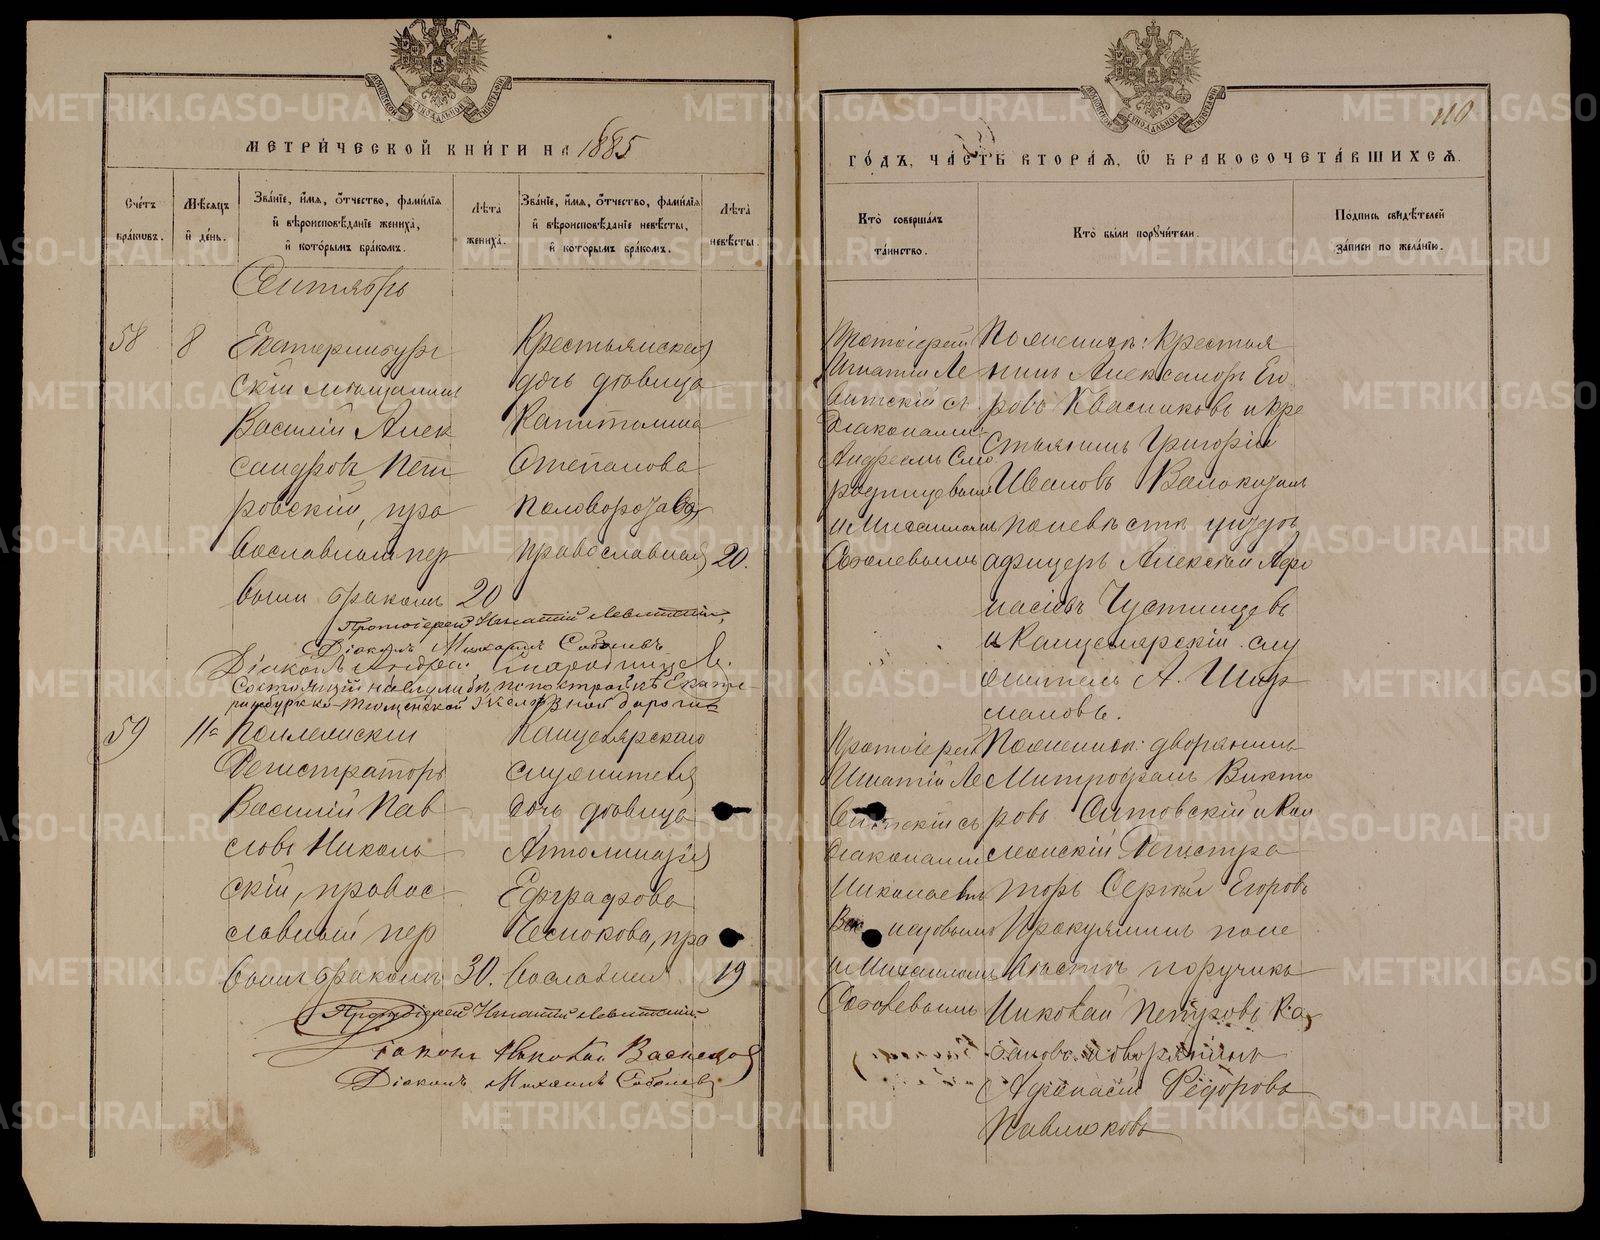 МЕТРИ́ЧЕСКОЙ КНИ́ГИ НА 1885
Сче́тъ бра́ковъ.
Мѣ́сяцъ и́ де́нь.
Зва́нїе, и́мя, о́тчество, фами́лїя и́ вѣроисповѣ́данїе жениха̀, и́ кото́рымъ бра́комъ.
Лѣта̀ жениха̀.
Зва́нїе, и́мя, о́тчество, фами́лїя и́ вѣроисповѣ́данїе невѣ́сты, и́ кото́рымъ бра́комъ.
Лѣта̀ невѣ́сты.
Сентябрь
58
8
Екатеринбург
скій мѣщанинъ
Василій Алек
сандровъ Пет
ровскій, пра
вославный пер
вымъ бракомъ
20
Крестьянская
дочь дѣвица
Капитолина
Степанова
православная
20.
Протоіерей Игнатій Левитскій,
Діаконъ Михаилъ Соболевъ
Діаконъ Андрей
Состоящій на службѣ по постройкѣ Екате-
ринбургско-Тюменской желѣзной дороги
59
11
Коллежскій
Регистраторъ
Василій Пав
ловъ Николь
скій, правос
лавный пер
вымъ бракомъ
30.
Канцелярскаго
служителя
дочь дѣвица
Апполинарія
Евграфова
Чеснокова, пра
вославная
19
Протоіерей Игнатій Левитскій
Діаконъ Николай
Діаконъ Михаилъ Соболевъ
110
ГО́ДЪ, ЧА́СТЬ ВТОРА́Я, Ѡ БРАКОСОЧЕТА́ВШИХСЯ.
Кто̀ соверша́лъ та́инство.
Кто̀ бы́ли порꙋчи́тели.
По́дпись свидѣ́телей за́писи по жела́нїю.
Протоіерей
Игнатій Ле
витскій съ
діаконами:
Андреемъ
и Михаиломъ
Соболевымъ
По женихѣ: крестья
нинъ Александръ Его
ровъ Квасниковъ и кре
стьянинъ Григорій
Ивановъ
по невѣстѣ
офицеръ Алексѣй Афо
насіевъ Чустинцовъ
и Канцелярскій слу
житель А. Шир
мановъ.
Протоіерей
Игнатій Ле
витскій съ
діаконами
Николаемъ
и Михаиломъ
Соболевымъ
По женихѣ: дворянинъ
Митрофанъ Викто
ровъ Ситовскій и Кол
лежскій Регистра
торъ Сергѣй Егоровъ
по не
вѣстѣ поручикъ
Николай Петровъ Ка
заковъ и дворянинъ
Афанасій Ѳедоровъ
Павлюковъ
METRIKI.GASO-URAL.RU